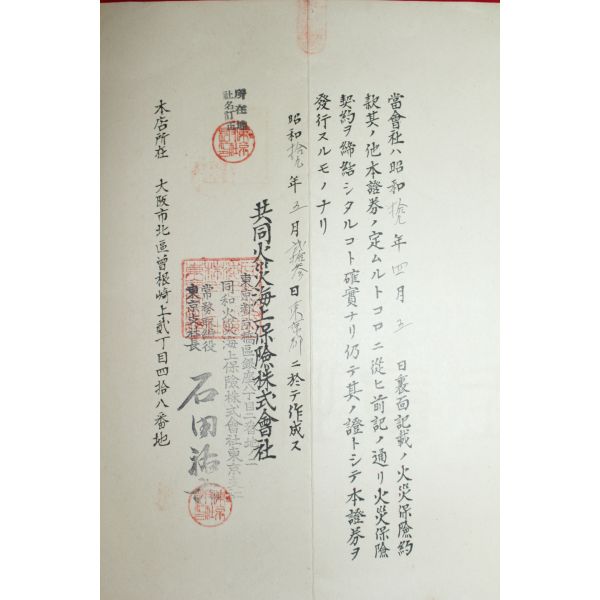 當會社ハ昭和拾九年四月五日裏面記載ノ火災保險約
款其ノ他本證券ノ定ムルトコロニ從ヒ前記ノ通リ火災保險
契約ヲ締結シタルコト確實ナリ仍テ其ノ證トシテ本證券ヲ
發行スルモノナリ
昭和拾九年五月貳拾參日東京ニ於テ作成ス
所在地
社名訂正
共同火災海上保險株式會社
同和火災海上保險株式會社東京支
常務取締役
東京支社長
石田
本店所在 大阪市北區曾根崎上貳丁目四拾八番地